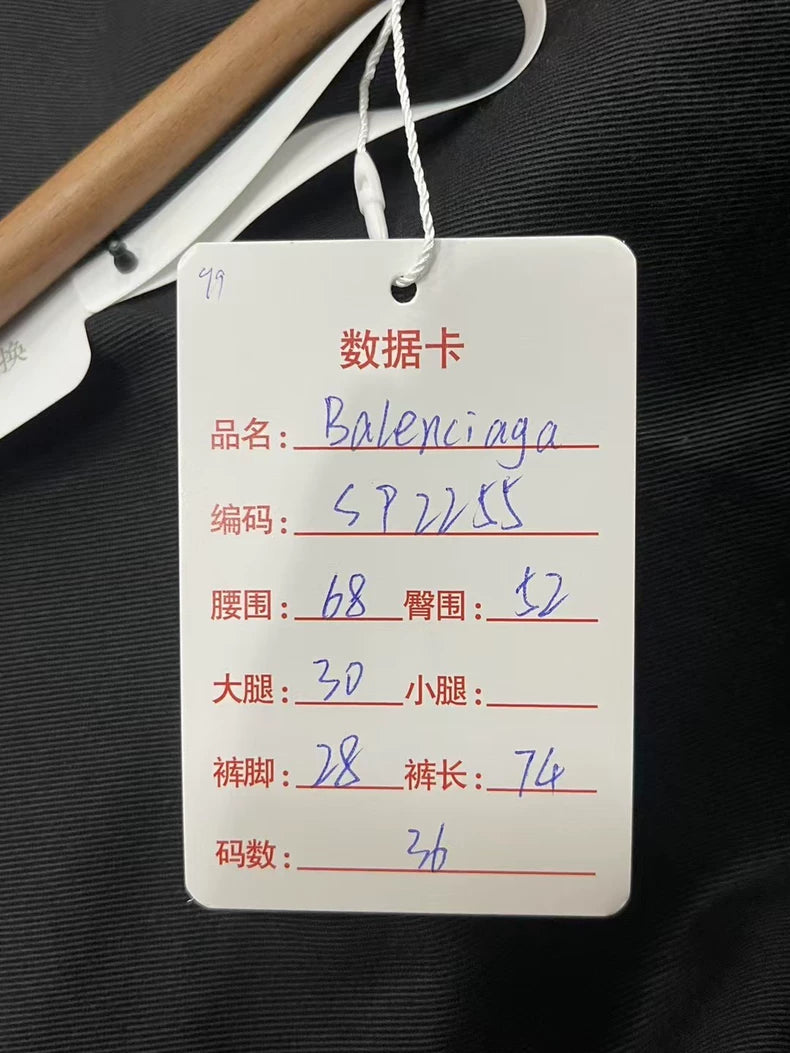 99
数据卡
品名: Balenciaga
编码: SP2255
腰围: 68 臀围: 52
大腿: 30 小腿:
裤脚: 28 裤长: 74
码数: 36
换